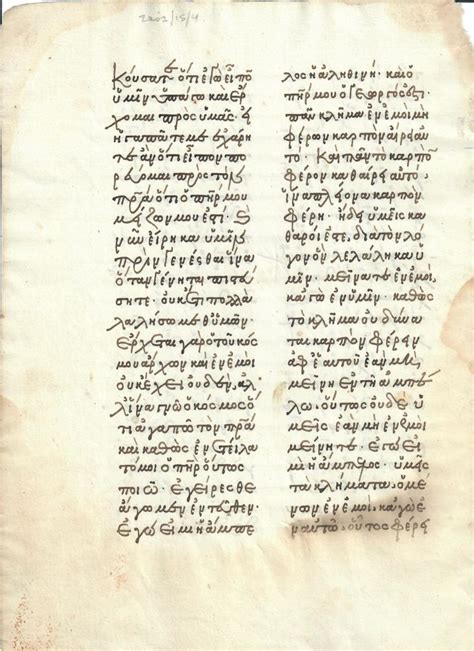 2202/15/4
κούσατε ὅτι ἐγὼ εἶπο
ὑμῖν ὑπάγω καὶ ἔρ
χομαι πρὸς ὑμᾶς· εἰ
ἠγαπᾶτέ με ἐχάρη
τε ἂν ὅτι εἶπον πο
ρεύομαι πρὸς τὸν
πρα ὅτι ὁ πηρ μου
μείζων μου ἐστί· καὶ
νῦν εἴρηκα ὑμῖν
πρὶν γενέσθαι ἵνα
ὅταν γένηται πιστεύ
σητε· οὐκέτι πολλὰ
λαλήσω μεθ' ὑμῶν·
ἔρχεται γὰρ ὁ τοῦ κόσ
μου ἄρχων καὶ ἐν ἐμοὶ
οὐκ ἔχει οὐδέν, ἀλ
λ' ἵνα γνῷ ὁ κόσμος ὅ
τι ἀγαπῶ τὸν πρα
καὶ καθὼς ἐντείλα
τό μοι ὁ πηρ οὕτως
ποιῶ· ἐγείρεσθε
ἄγωμεν ἐντεῦθεν·
ἐγώ εἰμι ἡ ἄμπε
λος ἡ ἀληθινή· καὶ ὁ
πηρ μου ὁ γεωργός ἐστι·
πᾶν κλῆμα ἐν ἐμοὶ μὴ
φέρον καρπὸν αἴρει αὐ
τό· καὶ πᾶν τὸ καρπὸ
φέρον καθαίρει αὐτὸ
ἵνα πλείονα καρπὸν
φέρῃ· ἤδη ὑμεῖς κα
θαροί ἐστε, διὰ τὸν λό
γον ὃν λελάληκα ὑ
μῖν· μείνατε ἐν ἐμοὶ,
κἀγὼ ἐν ὑμῖν· καθὼς
τὸ κλῆμα οὐ δύνα
ται καρπὸν φέρειν
ἀφ' ἑαυτοῦ ἐὰν μὴ,
μείνῃ ἐν τῇ ἀμπέ
λῳ· οὕτως οὐδὲ ὑ
μεῖς ἐὰν μὴ ἐν ἐμοὶ
μείνητε· ἐγώ εἰμι
ἡ ἄμπελος· ὑμεῖς
τὰ κλήματα· ὁ μέ
νων ἐν ἐμοὶ, κἀγὼ ἐ
ν αὐτῷ· οὗτος φέρει